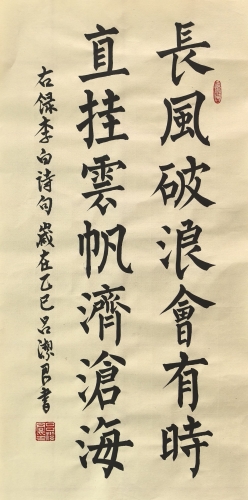 長風破浪會有時
直挂雲帆濟滄海
右録李白诗句 歲在乙巳 吕潔良書